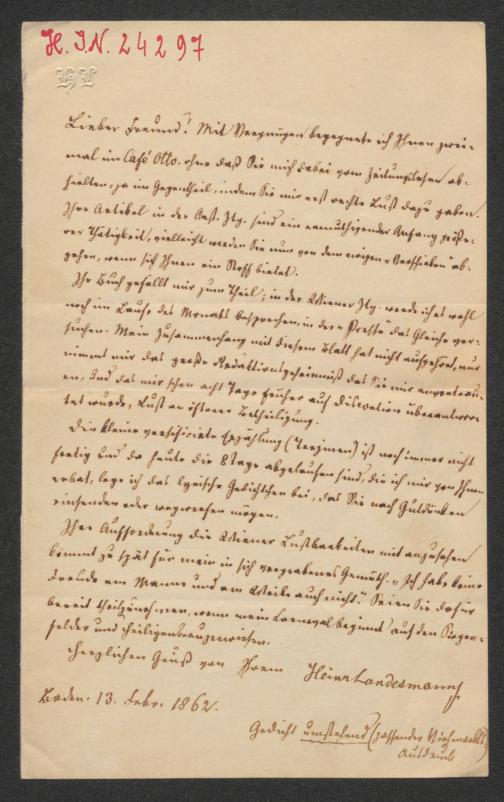 H. I. N. 24297
HL
Lieber Freund! Mit Vergnügen begegnete ich Ihnen zwei-
mal im Café Otto, ohne daß Sie mich dabei vom Zeitungslesen ab-
hielten, ja im Gegentheil, indem Sie mir erst rechte Lust dazu gaben.
Ihre Artikel in der Oest. Ztg. sind ein ermuthigender Anfang größe-
rer Thätigkeit, vielleicht werden Sie nun von dem ewigen "Verschieben" ab-
gehen, wenn sich Ihnen ein Stoff bietet.
Ihr Buch gefällt mir zum Theil; in der Wiener Ztg. werde ich es wohl
noch im Laufe des Monats besprechen, in der "Presse" das Gleiche ver-
suchen. Mein Zusammenhang mit diesem Blatt hat nicht aufgehört, nur
nimmt mir das große Redaktionsgeheimniß das Sie mir anvertrau-
en, und das mir schon acht Tage früher auf Discretion überantwor-
tet wurde, Lust an öfterer Betheiligung.
Die kleine versificirte Erzählung (Terzinen) ist noch immer nicht
fertig und da heute die 8 Tage abgelaufen sind, die ich mir von Ihnen
erbat, lege ich das lyrische Gedichtchen bei, das Sie nach Gutdünken
einsenden oder wegwerfen mögen.
Ihre Aufforderung die Wiener Lustbarkeiten mit anzusehen
kommt zu spät für mein in sich vergrabenes Gemüth. "Ich habe keine
Freude am Manne und am Weibe auch nicht." Seien Sie dafür
bereit theilzunehmen, wenn mein Carneval beginnt auf den
felder und Heiligenkreuzerwiesen.
Herzlichen Gruß von Ihrem HeinrLandesmann
Baden. 13. Febr. 1862.
Gedicht umstehend (passender
Ausdruck